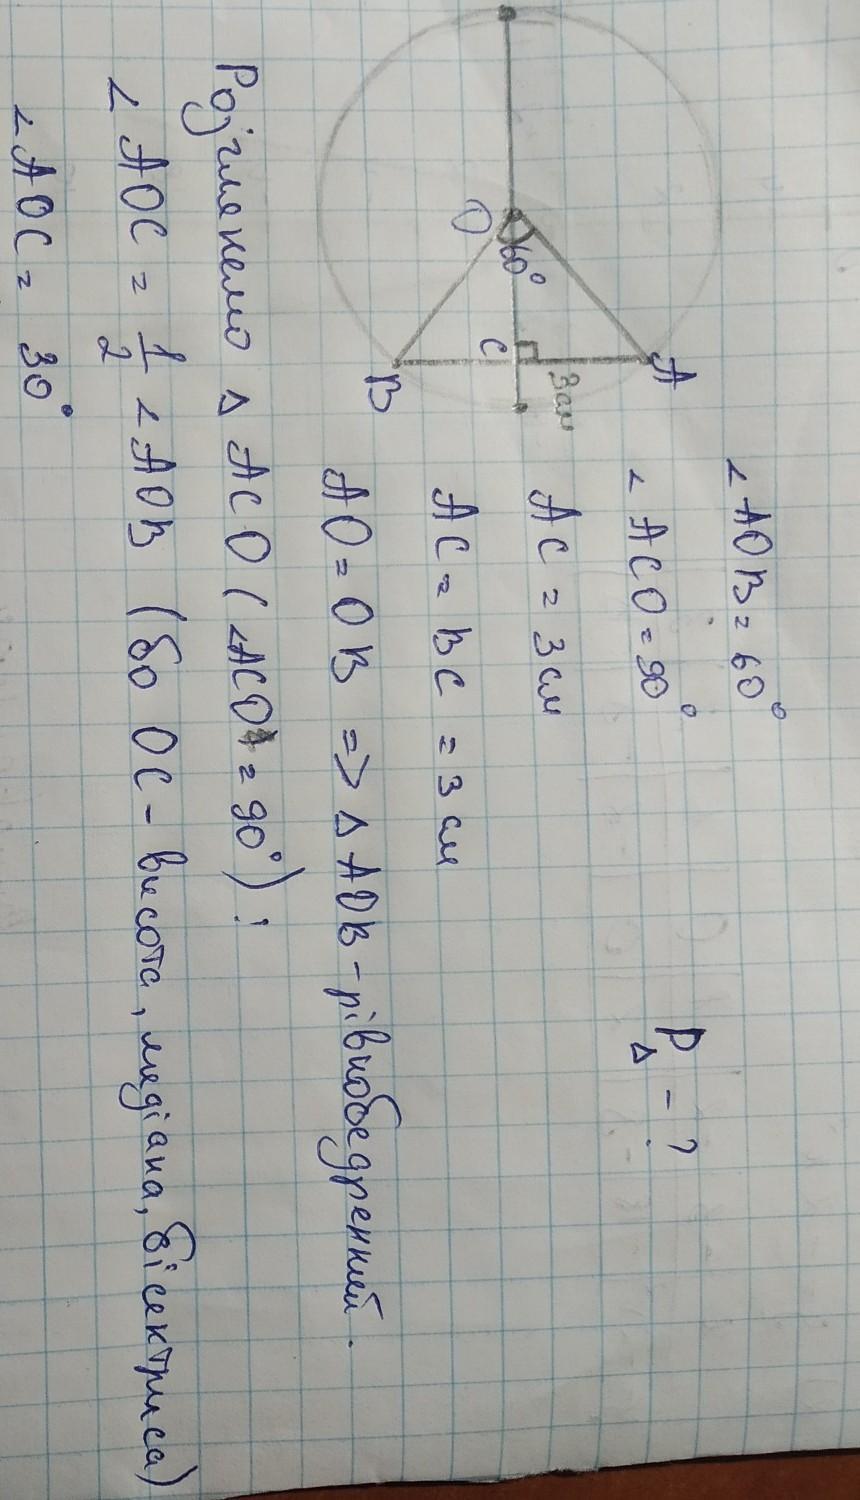 O
60°
C
3 см
A
B
∠ AOB = 60°
∠ ACO = 90°
P△ - ?
AC = 3 см
AC = BC = 3 см
AO = OB => △ AOB - рівнобедренний.
Розглянемо △ ACO (∠ACO = 90°):
∠ AOC = 1/2 ∠AOB (бо OC - висота, медіана, бісектриса)
∠ AOC = 30°